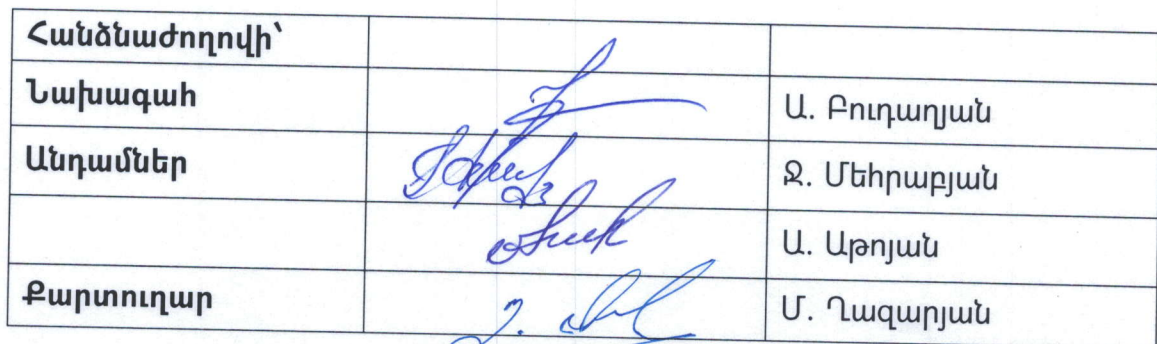 Հանձնաժողովի՝
Նախագահ Ա. Բուդաղյան
Անդամներ Ջ. Մեհրաբյան
Ա. Աթոյան
Քարտուղար Մ. Ղազարյան